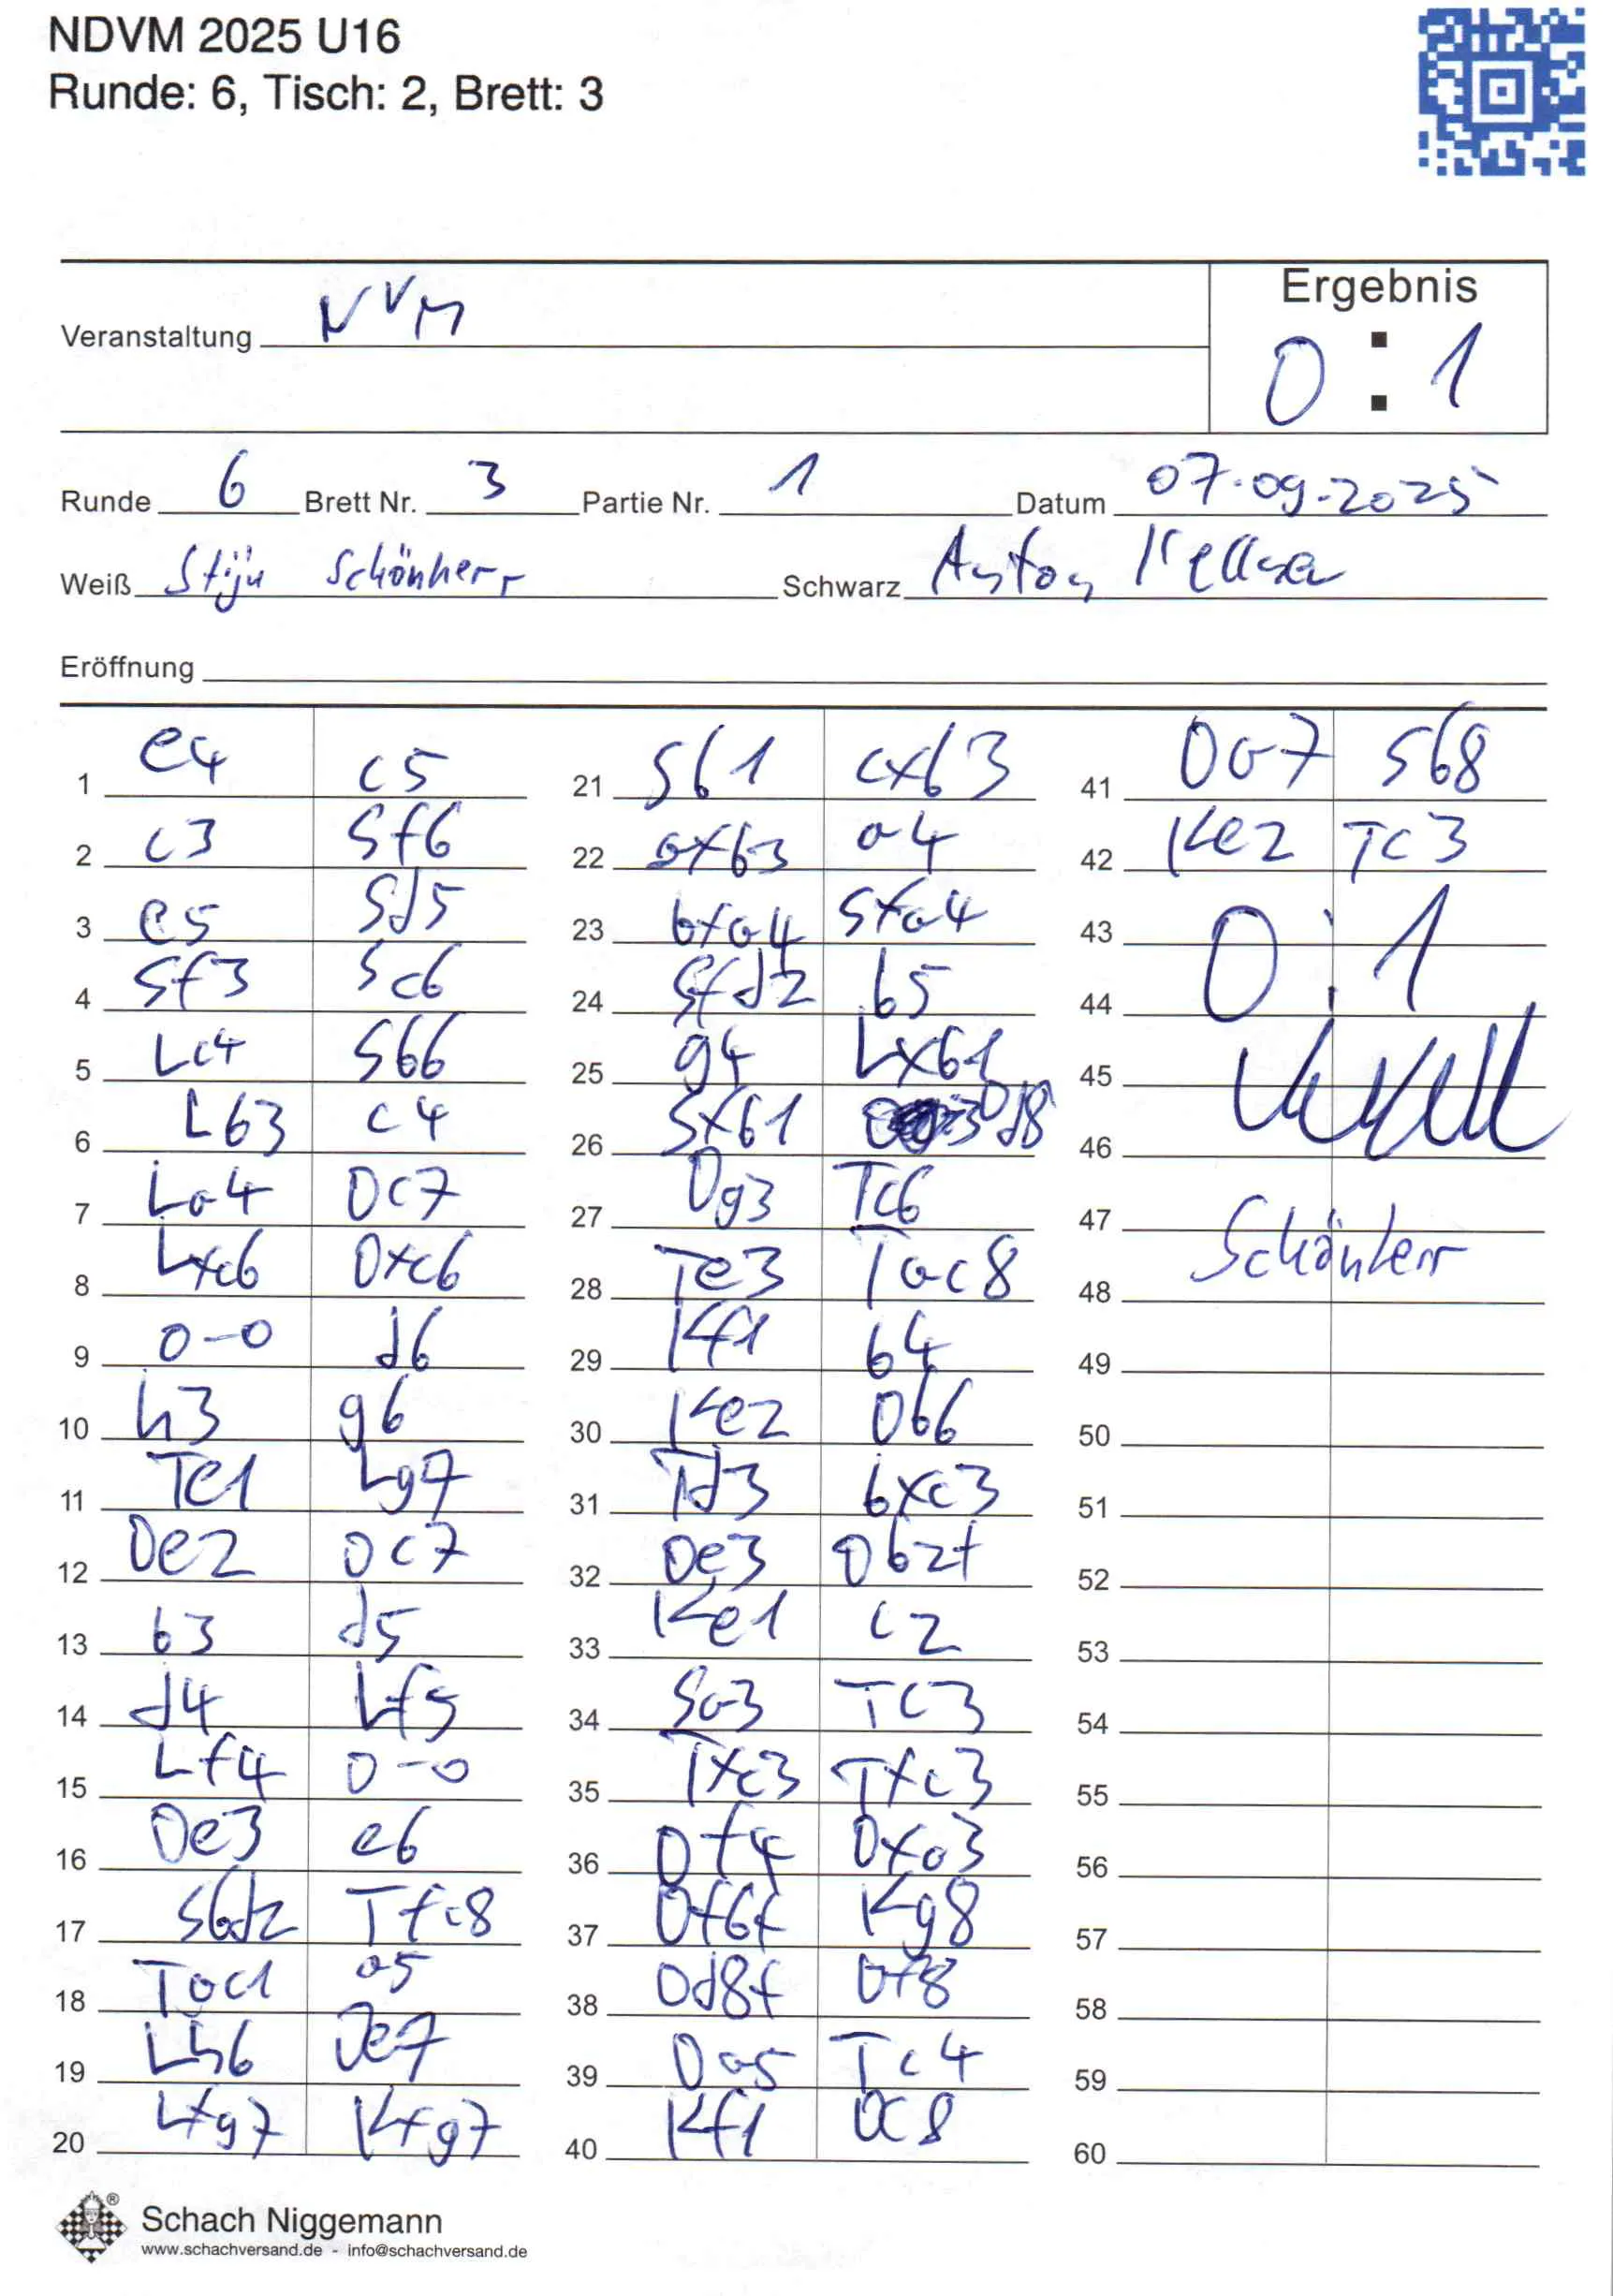 NDVM 2025 U16
Runde: 6, Tisch: 2, Brett: 3
Ergebnis
Veranstaltung NVM
0 : 1
Runde 6 Brett Nr. 3 Partie Nr. 1 Datum 07.09.2025
Weiß Stijn Schönherr Schwarz Anton
Eröffnung
1 e4 c5 21 Sb1 cxb3 41 Da7 Sb8
2 c3 Sf6 22 axb3 a4 42 Ke2 Tc3
3 e5 Sd5 23 bxa4 Sxa4 43 0 : 1
4 Sf3 Sc6 24 Sfd2 b5 44
5 Lc4 Sb6 25 g4 Lxb1 45
6 Lb3 c4 26 Sxb1 Dd8 46
7 La4 Dc7 27 Dg3 Tc6 47 Schönherr
8 Lxc6 Dxc6 28 Te3 Tac8 48
9 0-0 d6 29 Kf1 b4 49
10 h3 g6 30 Ke2 Db6 50
11 Te1 Lg7 31 Td3 bxc3 51
12 De2 Dc7 32 De3 Db2+ 52
13 b3 d5 33 Ke1 c2 53
14 d4 Lf5 34 Sa3 Tc3 54
15 Lf4 0-0 35 Txc3 Txc3 55
16 De3 e6 36 Df4 Dxa3 56
17 Sbd2 Tfc8 37 Df6+ Kg8 57
18 Tac1 a5 38 Dd8+ Df8 58
19 Lh6 De7 39 Da5 Tc4 59
20 Lxg7 Kxg7 40 Kf1 Dc8 60
Schach Niggemann
www.schachversand.de - info@schachversand.de